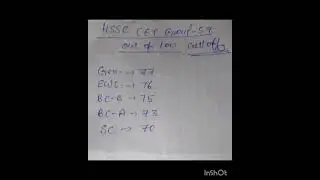 HSSC CET Group-57
out of 100 cutoff
Gen → 77
EWS → 76
BC-B → 75
BC-A → 73
SC → 70
InShOt